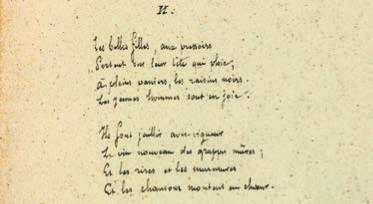 II.
Les belles filles, aux pressoirs
Portent sur leur tête qui ploie,
à pleins paniers, les raisins noirs.
Les jeunes hommes sont en joie.
Ils font jaillir avec vigueur
Le vin nouveau des grappes mûres ;
Et les rires et les murmures
Et les chansons montent en chœur.